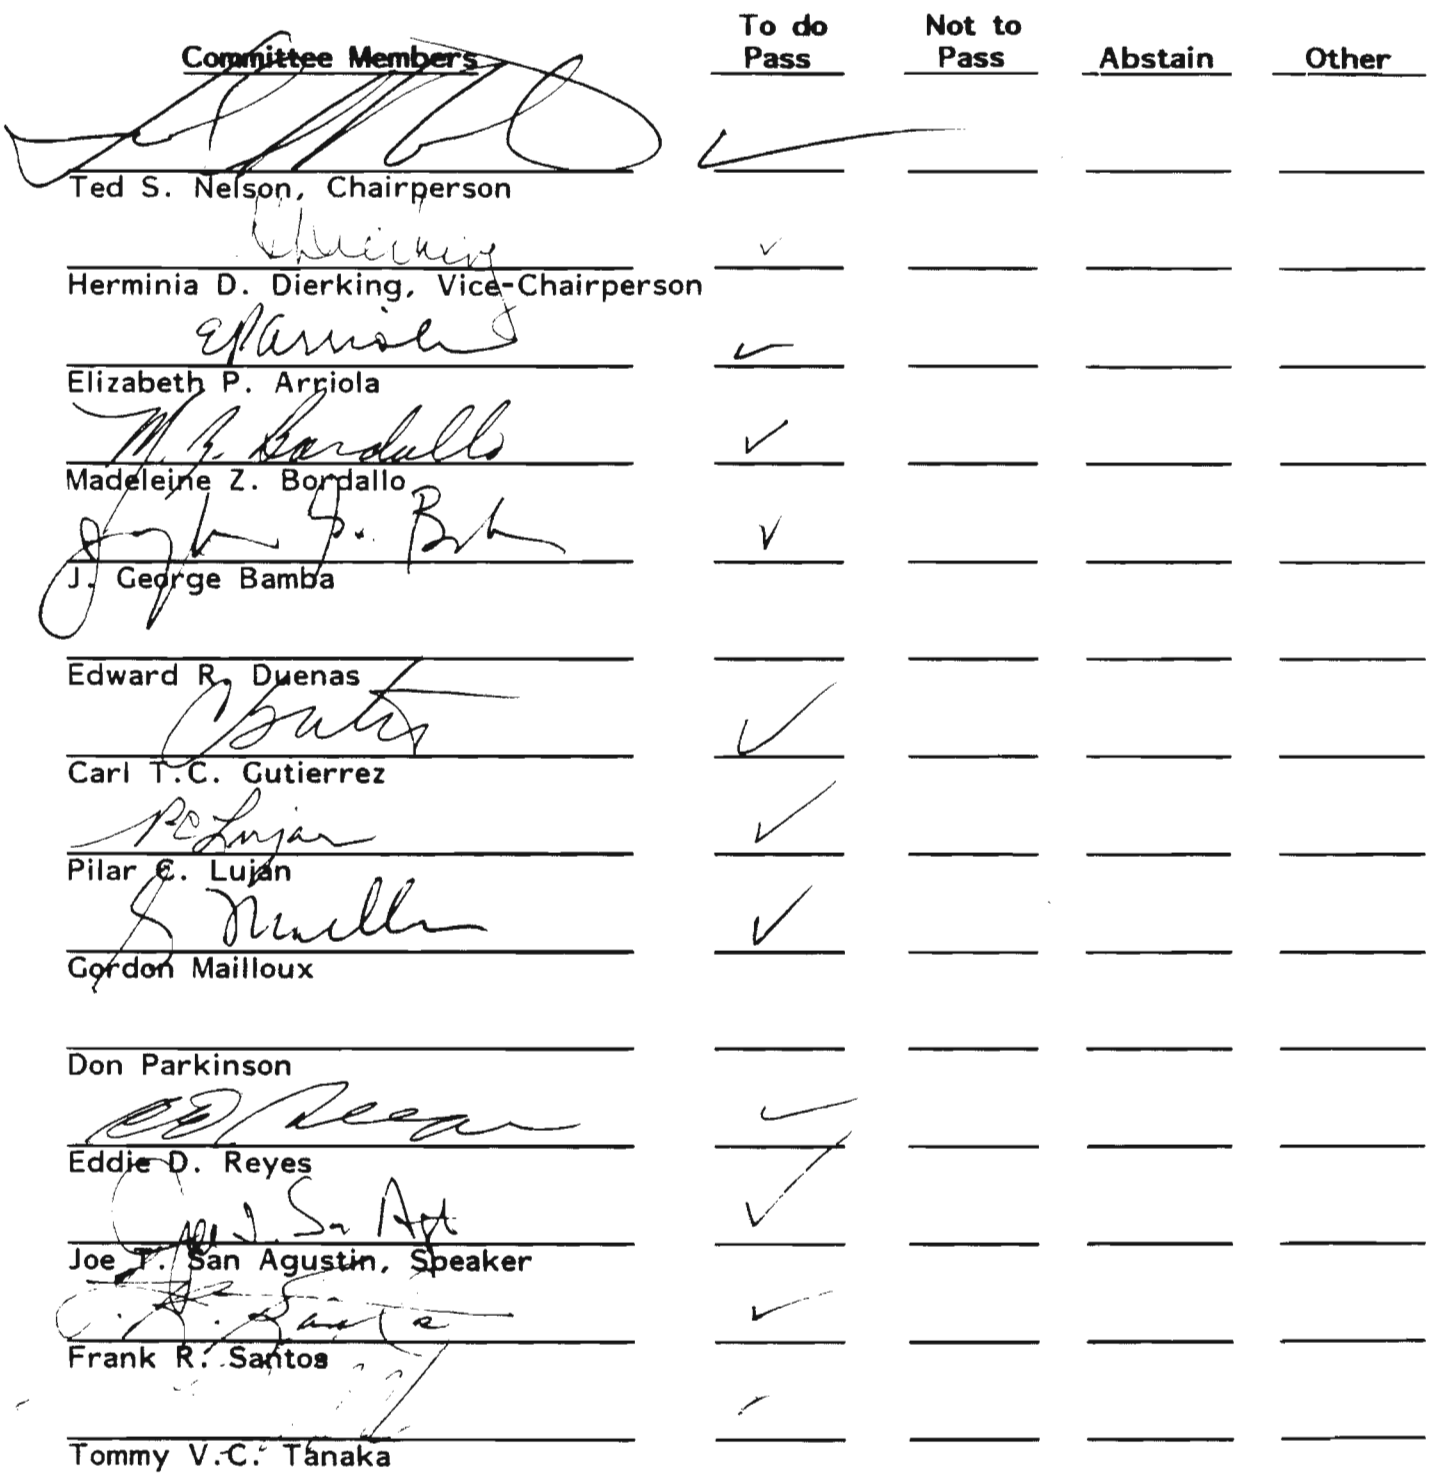 To do Not to
Committee Members Pass Pass Abstain Other
Ted S. Nelson, Chairperson
Dierking
✓
Herminia D. Dierking, Vice-Chairperson
EPArriola ✓
Elizabeth P. Arriola
M. Z. Bordallo ✓
Madeleine Z. Bordallo
✓
J. George Bamba
Edward R. Duenas
✓
Carl T.C. Gutierrez
PC Lujan ✓
Pilar C. Lujan
✓
Gordon Mailloux
Don Parkinson
✓
Eddie D. Reyes
✓
Joe T. San Agustin, Speaker
✓
Frank R. Santos
Tommy V.C. Tanaka